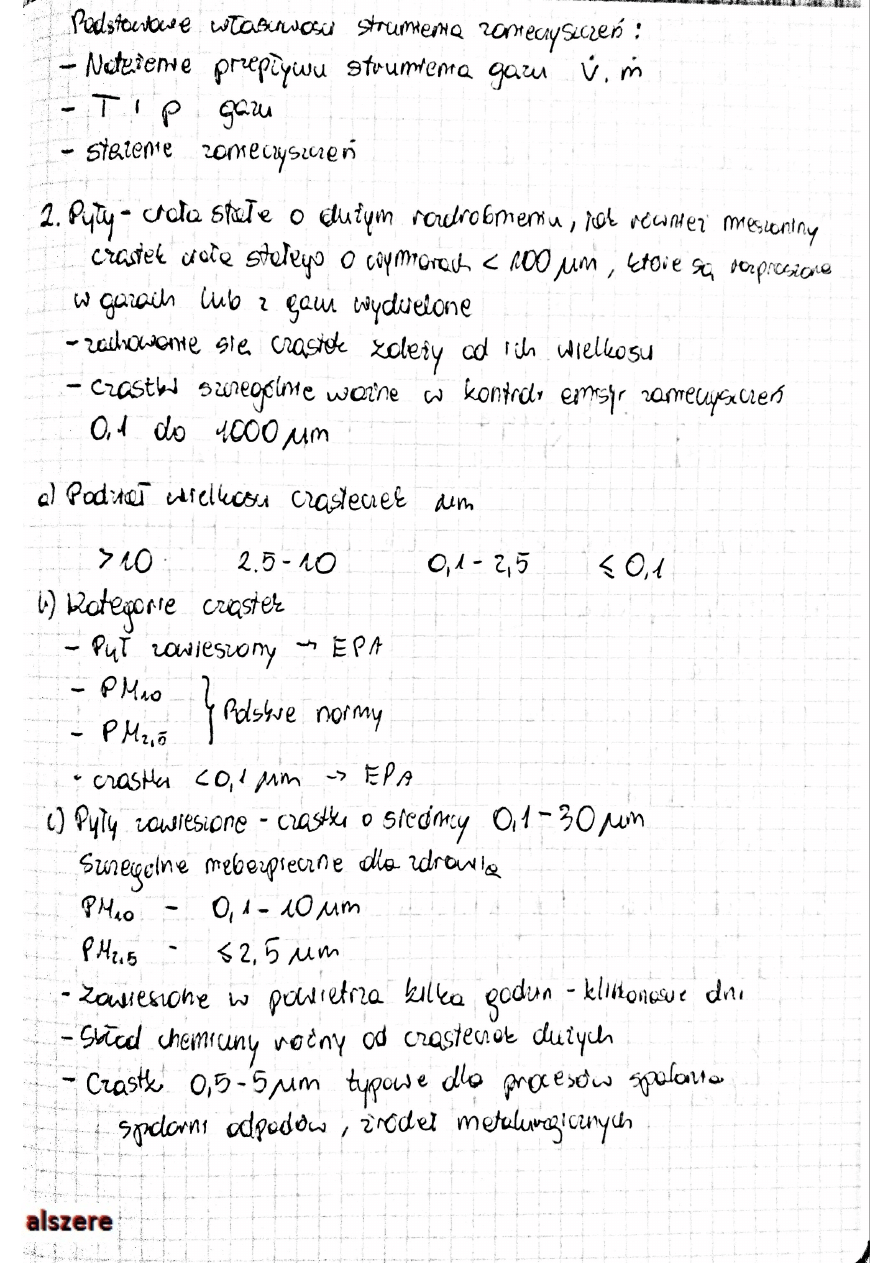 Podstawowe właściwości strumienia zanieczyszczeń :
- Natężenie przepływu strumienia gazu V̇, ṁ
- T i p gazu
- stężenie zanieczyszczeń
2. Pyły - ciała stałe o dużym rozdrobnieniu, jak również mieszaniny
cząstek ciała stałego o wymiarach < 100 μm, które są rozproszone
w gazach lub z gazu wydzielone
- zachowanie się cząstek zależy od ich wielkości
- cząstki szczególnie ważne w kontroli emisji zanieczyszczeń
0,1 do 1000 μm
a) Podział wielkości cząsteczek μm
>10 2.5-10 0,1-2,5 ≤ 0,1
b) Kategorie cząstek
- Pył zawieszony → EPA
- PM10
- PM2,5 } Polskie normy
- cząstki <0,1 μm → EPA
c) Pyły zawieszone - cząstki o średnicy 0,1-30 μm
Szczególnie niebezpieczne dla zdrowia
PM10 - 0,1-10 μm
PM2.5 - ≤2,5 μm
- Zawieszone w powietrzu kilka godzin - kilkanaście dni
- Skład chemiczny różny od cząsteczek dużych
- Cząstki 0,5-5 μm typowe dla procesów spalania
spalarni odpadów, źródeł metalurgicznych
alszere